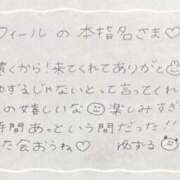 フィールの本指名さま♡
遠くから!来てくれてありがと☺
ゆずるじゃないとって言ってくれ
の嬉しいな 楽しみすぎ
時間あっという間だった!!
た会おうね♡ ゆずる